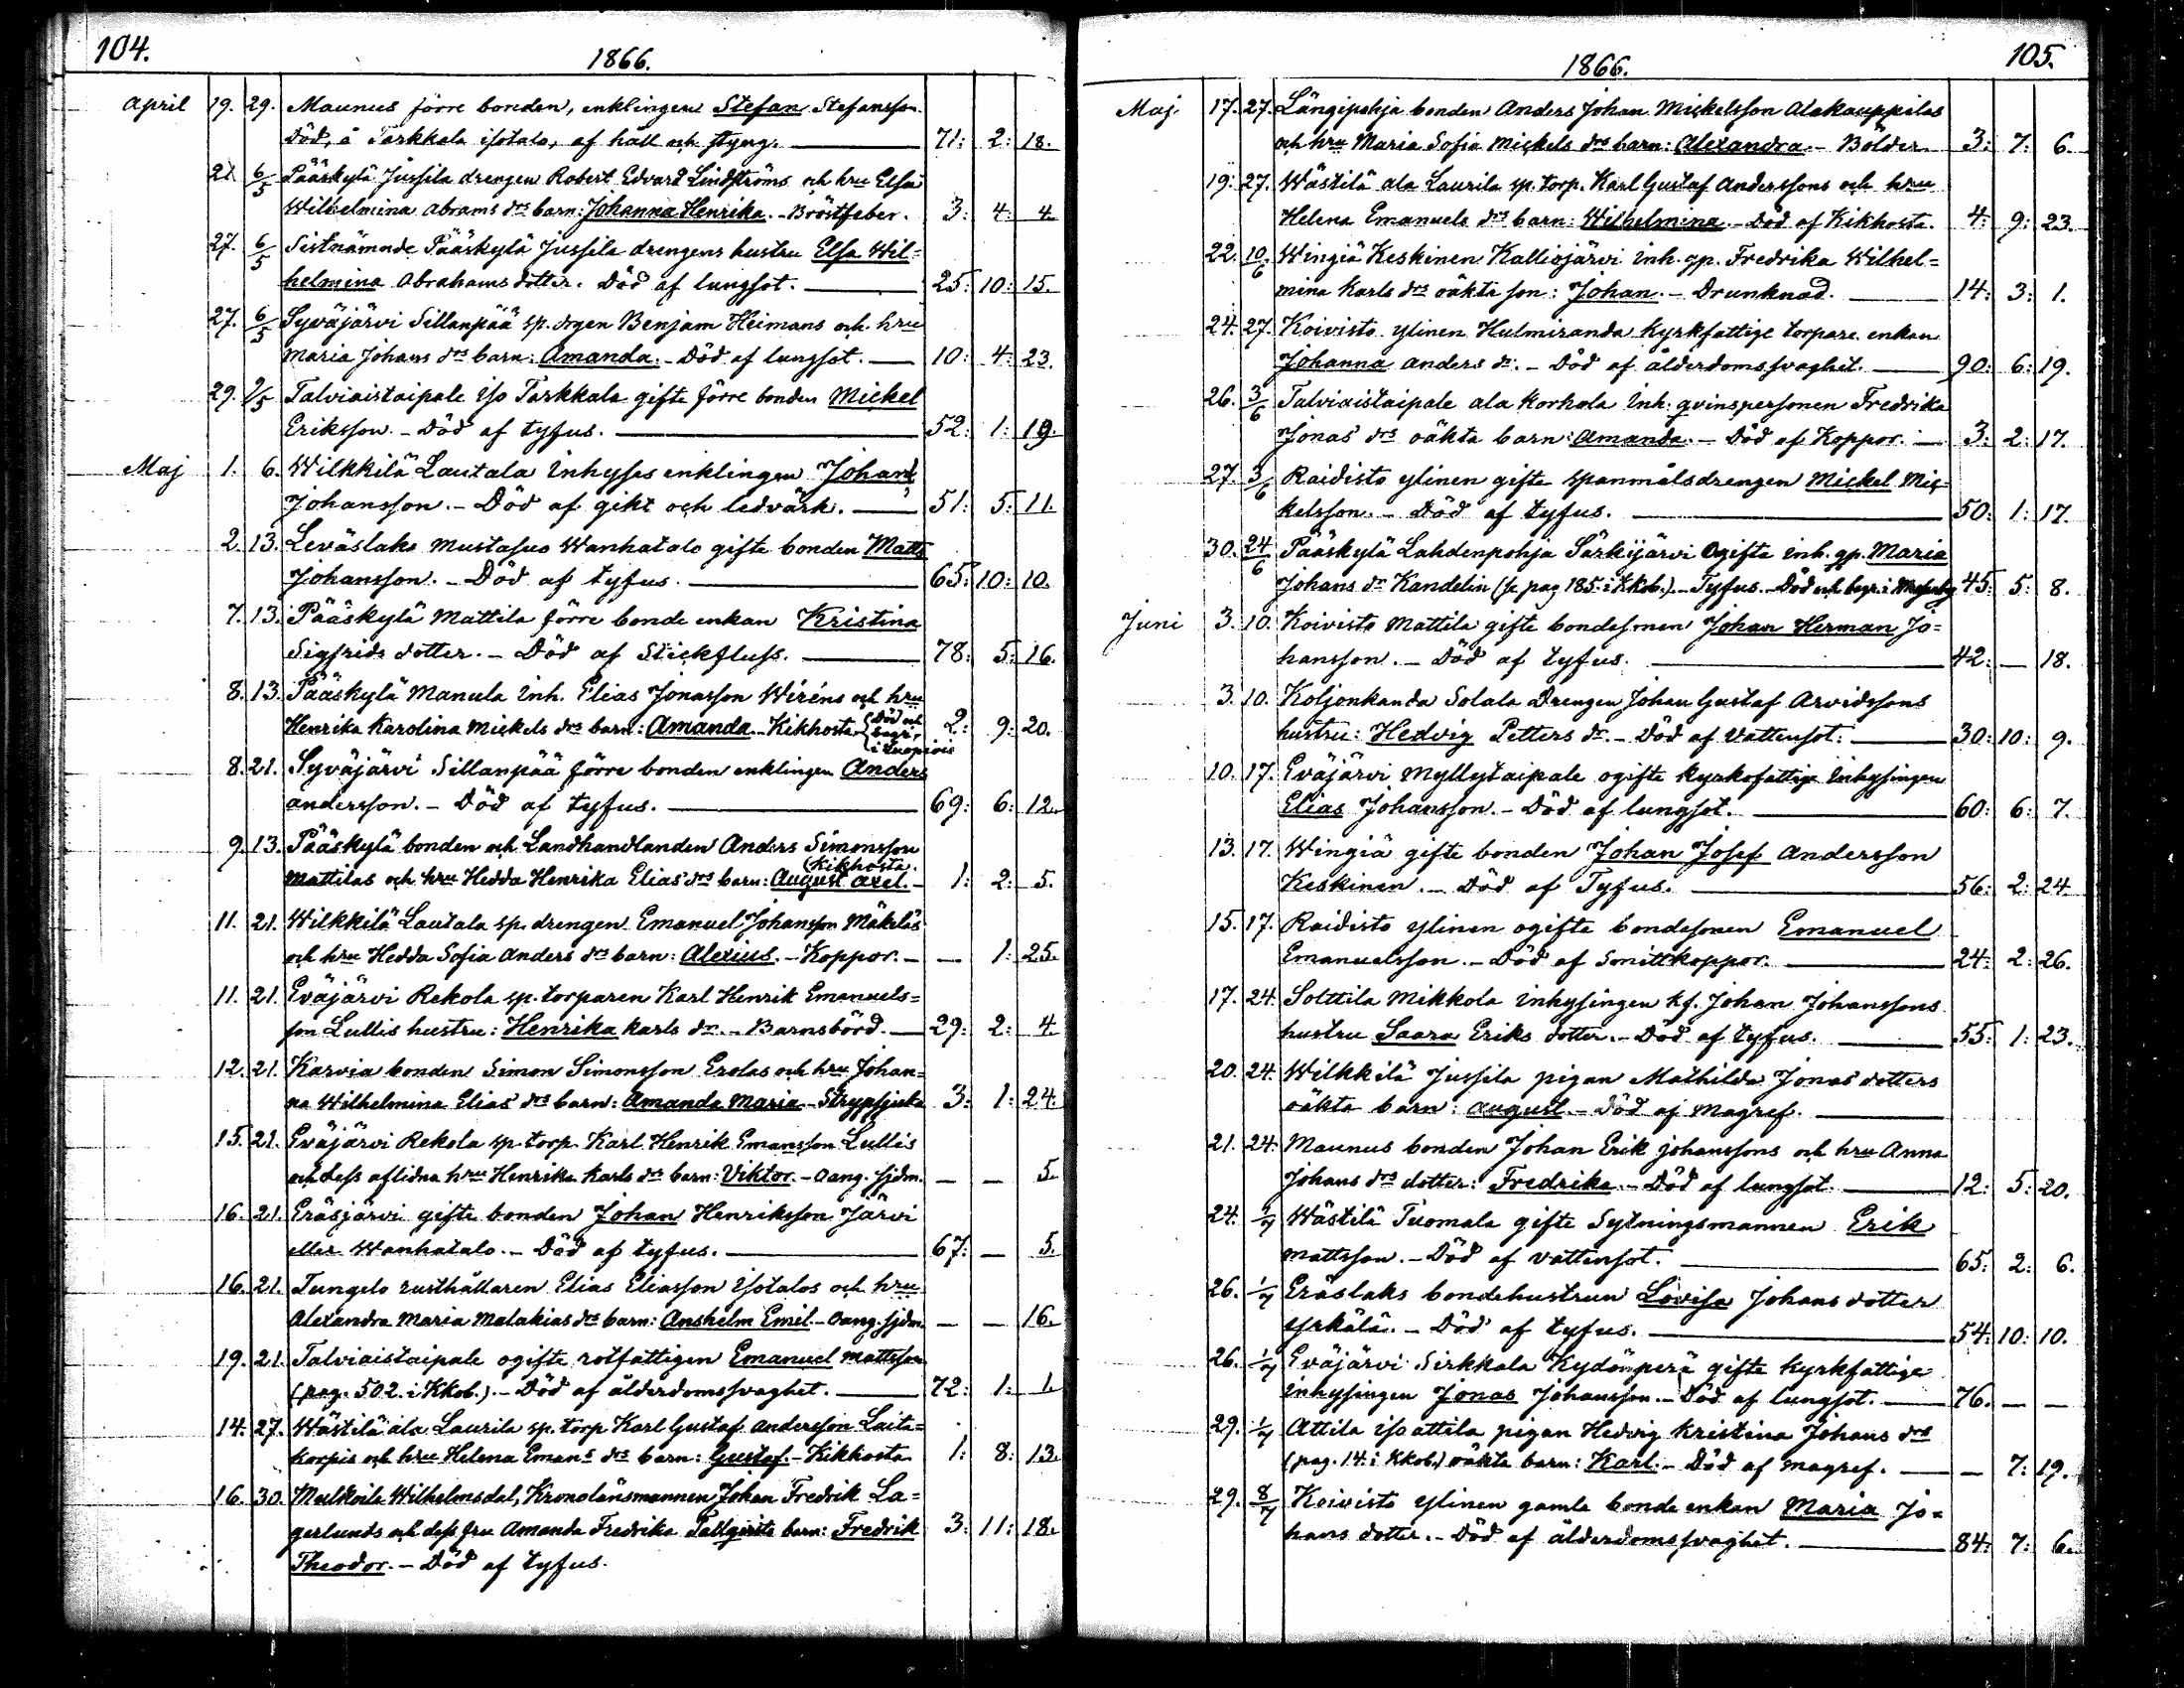 104.
1866.
April 19. 29. Maunus förre bonden, enklingen Stefan Stefansson.
Död, å Tarkkala isotalo, af håll och styng. — 71: 2: 18.
21 6/5 Pääskylä Jussila drengen Robert Edvard Lindströms och hru Elsa
Wilhelmina Abrams drs barn: Johanna Henrika. - Bröstfeber. 3: 4: 4
27. 6/5 Sistnämnde Pääskylä Jussila drengens hustru Elsa Wil=
helmina Abrahams dotter. Död af lungsot. — 25: 10: 15.
27. 6/5 Syväjärvi Sillanpää sp. drgen Benjam Heimans och hru
Maria Johans drs barn: Amanda. - Död af lungsot. — 10: 4: 23.
29. 9/5 Talviaistaipale iso Tarkkala gifte förre bonden Mickel
Eriksson. - Död af tyfus. — 52: 1: 19.
Maj 1. 6. Wilkkilä Lautala inhyses enklingen Johan
Johansson. - Död af gikt och ledvärk. — 51: 5: 11.
2. 13. Leväslaks Mustasuo Wanhatalo gifte bonden Matts
Johansson. - Död af tyfus. — 65: 10: 10.
7. 13. Pääskylä Mattila förre bonde enkan Kristina
Sigfrids dotter. - Död af Stickfluss. — 78: 5: 16.
8. 13. Pääskylä Manula inh. Elias Jonasson Wiréns och hru
Henrika Karolina Mickels drs barn: Amanda. - Kikhosta. {Död och begr. i Luopiois 2: 9: 20.
8. 21. Syväjärvi Sillanpää förre bonden enklingen Anders
Andersson. - Död af tyfus. — 69: 6: 12.
9. 13. Pääskylä bonden och Landhandlanden Anders Simonsson
(Kikhosta.
Mattilas och hru Hedda Henrika Elias' drs barn: August Axel. - 1: 2: 5.
11. 21. Wilkkilä Lautala sp. drengen Emanuel Johansson Mäkeläs
och hru Hedda Sofia Anders drs barn: Alexius. - Koppor. - — 1: 25.
11. 21. Eväjärvi Rekola sp. torparen Karl Henrik Emanuels=
son Lullis hustru: Henrika Karls dr. - Barnsbörd. — 29: 2: 4.
12. 21. Karvia bonden Simon Simonsson Erolas och hru Johan=
na Wilhelmina Elias' drs barn: Amanda Maria. - Strypsjuka 3: 1: 24.
15. 21. Eväjärvi Rekola sp. torp. Karl Henrik Emansson Lullis
och dess aflidna hru Henrika Karls drs barn: Viktor. - Oang. sjdm. — — 5.
16. 21. Eräsjärvi gifte bonden Johan Henriksson Järvi
eller Wanhatalo. - Död af tyfus. — 67: — 5.
16. 21. Tungelo rusthållaren Elias Eliasson Isotalos och hru
Alexandra Maria Malakias drs barn: Anshelm Emil. - Oang. sjdm. — — 16.
19. 21. Talviaistaipale ogifte rotfattigen Emanuel Mattsson
(pag. 502. i Kkob.). - Död af ålderdomssvaghet. — 72: 1: 1.
14. 27. Wästilä ala Laurila sp. torp Karl Gustaf Andersson Laita=
korpis och hru Helena Emans drs barn: Gustaf. - Kikhosta 1: 8: 13.
16. 30. Mulkoila Wilhelmsdal, Kronolänsmannen Johan Fredrik La=
gerlunds och dess fru Amanda Fredrika Tallqvists barn: Fredrik 3: 11: 18.
Theodor. - Död af tyfus.
105.
1866.
Maj 17. 27. Längipohja bonden Anders Johan Mickelsson Alakauppilas
och hru Maria Sofia Mickels drs barn: Alexandra. - Bölder. 3: 7: 6.
19. 27. Wästilä ala Laurila sp. torp. Karl Gustaf Anderssons och hru
Helena Emanuels drs barn: Wilhelmina. - Död af Kikhosta. 4: 9: 23.
22. 10/6 Wingiä Keskinen Kalliojärvi inh. qp. Fredrika Wilhel=
mina Karls drs oäkta son: Johan. - Drunknad. — 14: 3: 1.
24. 27. Koivisto ylinen Hulmiranda kyrkfattige torpare enkan
Johanna Anders dr. - Död af ålderdomssvaghet. — 90: 6: 19.
26. 3/6 Talviaistaipale ala Korhola inh. qvinspersonen Fredrika
Jonas' drs oäkta barn: Amanda. - Död af Koppor. — 3: 2: 17.
27. 3/6 Raidisto ylinen gifte spanmålsdrengen Mickel Mic=
kelsson. - Död af tyfus. — 50: 1: 17.
30. 24/6 Pääskylä Lahdenpohja Särkijärvi Ogifta inh. qp. Maria
Johans dr Kandelin (se pag 185. i Kkob.). - Tyfus. - Död och begr. i 45: 5: 8.
Juni 3. 10. Koivisto Mattila gifte bondesonen Johan Herman Jo=
hansson. - Död af tyfus. — 42: — 18.
3. 10. Koljonkanda Solala Drengen Johan Gustaf Arvidssons
hustru: Hedvig Petters dr. - Död af Vattensot. — 30: 10: 9.
10. 17. Eväjärvi Myllytaipale ogifte kyrkofattige inhysingen
Elias Johansson. - Död af lungsot. — 60: 6: 7.
13. 17. Wingiä gifte bonden Johan Josef Andersson
Keskinen. - Död af Tyfus. — 56: 2: 24
15. 17. Raidisto ylinen ogifte bondesonen Emanuel
Emanuelsson. - Död af Smittkoppor. — 24: 2: 26.
17. 24. Solttila Mikkola inhysingen kf. Johan Johanssons
hustru Saara Eriks dotter. - Död af tyfus. — 55: 1: 23.
20. 24. Wilkkilä Jussila pigan Mathilda Jonas' dotters
oäkta barn: August. - Död af magref. —
21. 24. Maunus bonden Johan Erik Johanssons och hru Anna
Johans drs dotter: Fredrika. - Död af lungsot. — 12: 5: 20.
24. 1/7 Wästilä Tuomala gifte Sytningsmannen Erik
Mattsson. - Död af vattensot. — 65: 2: 6.
26. 1/7 Eräslaks bondehustrun Lovisa Johans dotter
Yrkälä. - Död af tyfus. — 54: 10: 10.
26. 1/7 Eväjärvi Sirkkala Kydönperä gifte kyrkfattige
inhysingen Jonas Johansson. - Död af lungsot. — 76. — —
29. 1/7 Attila iso attila pigan Hedvig Kristina Johans drs
(pag. 14. i Kkob.) oäkta barn: Karl. - Död af magref. — — 7: 19.
29. 8/7 Koivisto ylinen gamla bonde enkan Maria Jo=
hans dotter. - Död af ålderdomssvaghet. — 84: 7: 6.